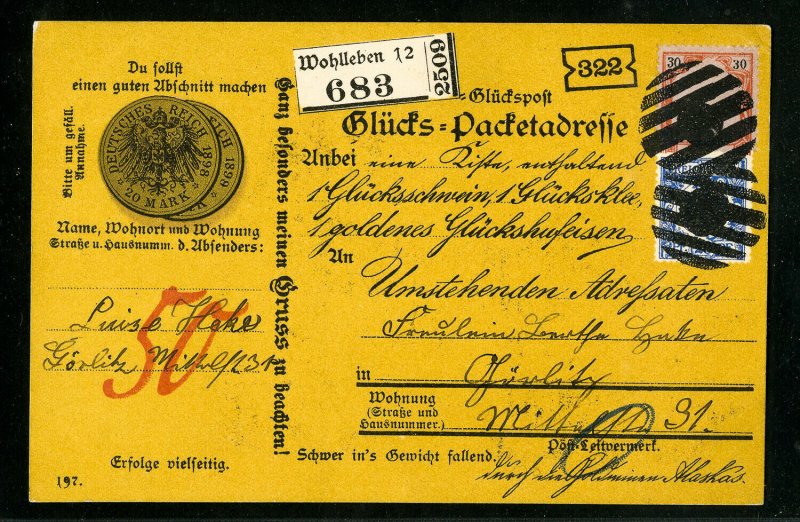 Du sollst
einen guten Abschnitt machen
Bitte um gefäll.
Annahme.
DEUTSCHES REICH 1898
20 MARK
REICH 1899
Name, Wohnort und Wohnung
Straße u. Hausnumm. d. Absenders:
50
Luise
Görlitz
Erfolge vielseitig.
197.
Ganz besonders meinen Gruss zu beachten!
Wohlleben 12
683
2509
322
30 30
=Glückspost
Glücks=Packetadresse
Anbei eine Kiste, enthaltend
1 Glücksschwein, 1 Glücksklee,
1 goldenes Glückshufeisen,
An
Umstehenden Adressaten
Fräulein Berthe Hake
in Görlitz
Wohnung
(Straße und
Hausnummer.)
31.
Post-Leitvermerk.
Schwer in's Gewicht fallend.
durch die Goldminen Alaskas.